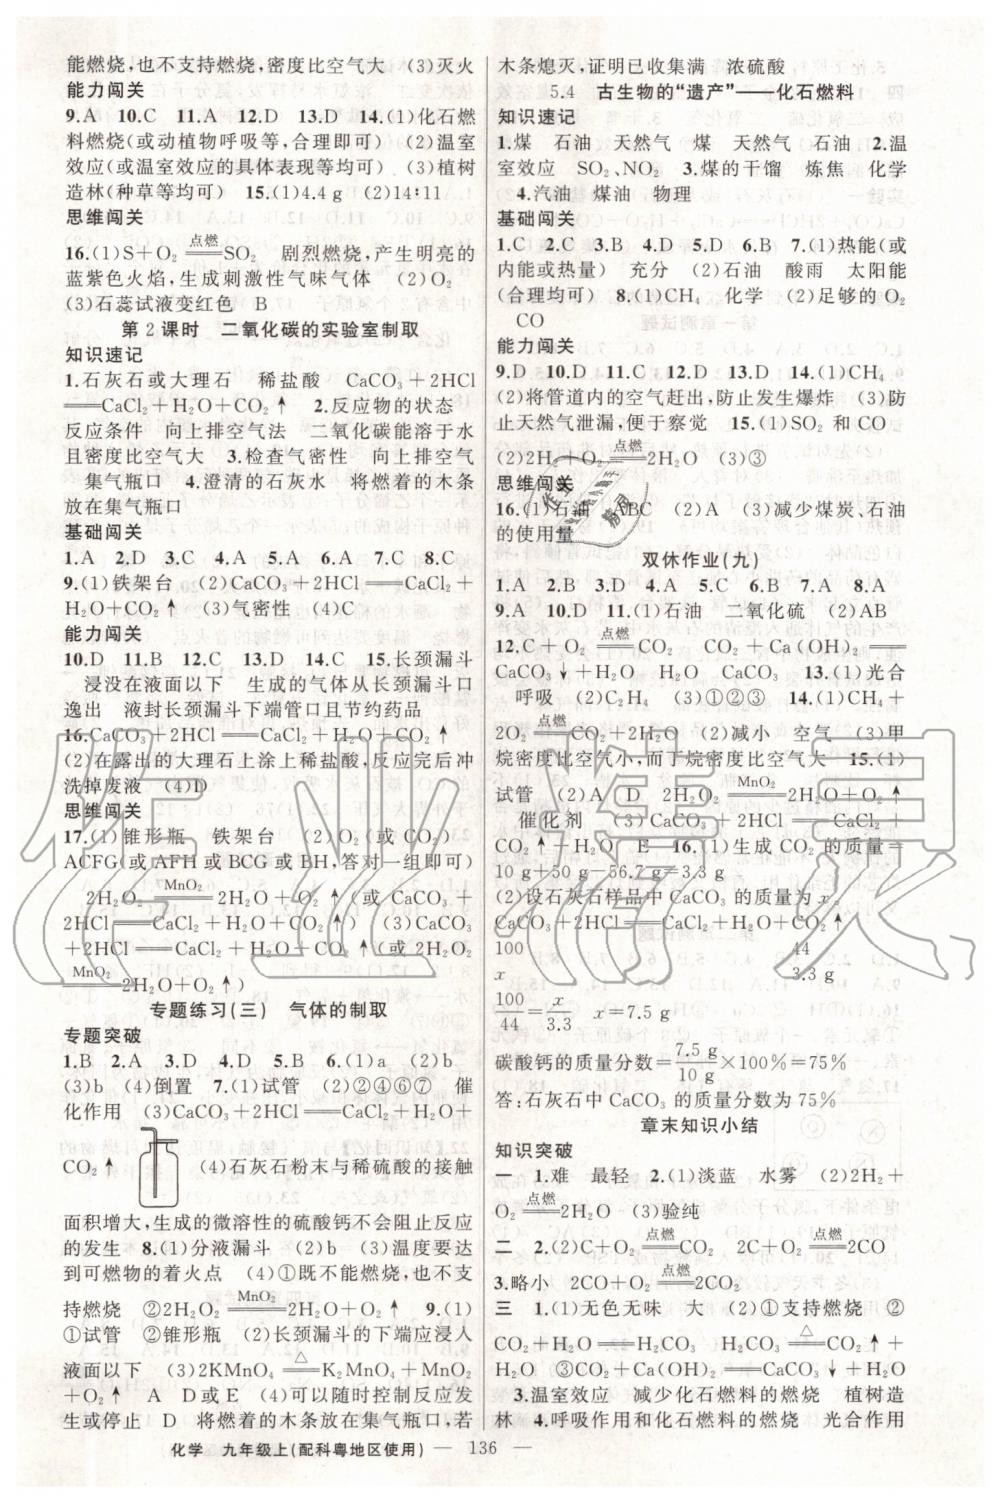 能燃烧,也不支持燃烧,密度比空气大　(3)灭火
能力闯关
9.A　10.C　11.A　12.D　13.D　14.(1)化石燃
料燃烧(或动植物呼吸等,合理即可)　(2)温室
效应(或温室效应的具体表现等均可)　(3)植树
造林(种草等均可)　15.(1)4.4 g　(2)14∶11
思维闯关
16.(1)S+O₂ 点燃 SO₂　剧烈燃烧,产生明亮的
蓝紫色火焰,生成刺激性气味气体　(2)O₂
(3)石蕊试液变红色　B
第2课时　二氧化碳的实验室制取
知识速记
1.石灰石或大理石　稀盐酸　CaCO₃+2HCl
══CaCl₂+H₂O+CO₂↑　2.反应物的状态
反应条件　向上排空气法　二氧化碳能溶于水
且密度比空气大　3.检查气密性　向上排空气
集气瓶口　4.澄清的石灰水　将燃着的木条
放在集气瓶口
基础闯关
1.A　2.D　3.C　4.A　5.A　6.C　7.C　8.C
9.(1)铁架台　(2)CaCO₃+2HCl══CaCl₂+
H₂O+CO₂↑　(3)气密性　(4)C
能力闯关
10.D　11.B　12.C　13.D　14.C　15.长颈漏斗
浸没在液面以下　生成的气体从长颈漏斗口
逸出　液封长颈漏斗下端管口且节约药品
16.CaCO₃+2HCl══CaCl₂+H₂O+CO₂↑
(2)在露出的大理石上涂上稀硫酸,反应完后冲
洗掉废液　(4)D
思维闯关
17.(1)锥形瓶　铁架台　(2)O₂(或CO₂)
ACFG(或AFH或BCG或BH,答对一组即可)
2H₂O₂ MnO₂ 2H₂O+O₂↑(或CaCO₃+
2HCl══CaCl₂+H₂O+CO₂↑)　(3)CaCO₃
+2HCl══CaCl₂+H₂O+CO₂↑(或2H₂O₂
MnO₂ 2H₂O+O₂↑)
专题练习(三)　气体的制取
专题突破
1.B　2.A　3.D　4.D　5.B　6.(1)a　(2)b
(3)b　(4)倒置　7.(1)试管　(2)②④⑥⑦　催
化作用　(3)CaCO₃+2HCl══CaCl₂+H₂O+
CO₂↑　(4)石灰石粉末与稀硫酸的接触
面积增大,生成的微溶性的硫酸钙不会阻止反应
的发生　8.(1)分液漏斗　(2)b　(3)温度要达
到可燃物的着火点　(4)①既不能燃烧,也不支
持燃烧　②2H₂O₂ MnO₂ 2H₂O+O₂↑　9.(1)
①试管　②锥形瓶　(2)长颈漏斗的下端应浸入
液面以下　(3)2KMnO₄ △ K₂MnO₄+MnO₂
+O₂↑　A　D或E　(4)可以随时控制反应发
生或停止　D　将燃着的木条放在集气瓶口,若
木条熄灭,证明已收集满　浓硫酸
5.4　古生物的“遗产”——化石燃料
知识速记
1.煤　石油　天然气　煤　天然气　石油　2.温
室效应　SO₂、NO₂　3.煤的干馏　炼焦　化学
4.汽油　煤油　物理
基础闯关
1.C　2.C　3.B　4.D　5.D　6.B　7.(1)热能(或
内能或热量)　充分　(2)石油　酸雨　太阳能
(合理均可)　8.(1)CH₄　化学　(2)足够的O₂
CO
能力闯关
9.D　10.D　11.C　12.D　13.D　14.(1)CH₄
(2)将管道内的空气赶出,防止发生爆炸　(3)防
止天然气泄漏,便于察觉　15.(1)SO₂和CO
(2)2H₂+O₂ 点燃 2H₂O　(3)③
思维闯关
16.(1)石油　ABC　(2)A　(3)减少煤炭、石油
的使用量
双休作业(九)
1.A　2.B　3.B　4.C　5.B　6.D　7.A　8.A
9.A　10.D　11.(1)石油　二氧化硫　(2)AB
12.C+O₂ 点燃 CO₂　CO₂+Ca(OH)₂══
CaCO₃↓+H₂O　H₂O　CaCO₃　13.(1)光合
呼吸　(2)C₂H₄　(3)①②③　14.(1)CH₄+
2O₂ 点燃 CO₂+2H₂O　(2)减小　空气　(3)甲
烷密度比空气小,而丁烷密度比空气大　15.(1)
试管　(2)A　D　2H₂O₂ MnO₂ 2H₂O+O₂↑
催化剂　(3)CaCO₃+2HCl══CaCl₂+
CO₂↑+H₂O　E　16.(1)生成CO₂的质量=
10 g+50 g-56.7 g=3.3 g
(2)设石灰石样品中CaCO₃的质量为x。
CaCO₃+2HCl══CaCl₂+H₂O+CO₂↑
100　44
x　3.3 g
100/44=x/3.3　x=7.5 g
碳酸钙的质量分数=7.5 g/10 g×100%=75%
答:石灰石中CaCO₃的质量分数为75%
章末知识小结
知识突破
一　1.难　最轻　2.(1)淡蓝　水雾　(2)2H₂+
O₂ 点燃 2H₂O　(3)验纯
二　2.(2)C+O₂ 点燃 CO₂　2C+O₂ 点燃 2CO
3.略小　2CO+O₂ 点燃 2CO₂
三　1.(1)无色无味　大　(2)①支持燃烧　②
CO₂+H₂O══H₂CO₃　H₂CO₃ △ CO₂↑+
H₂O　③CO₂+Ca(OH)₂══CaCO₃↓+H₂O
3.温室效应　减少化石燃料的燃烧　植树造
林　4.呼吸作用和化石燃料的燃烧　光合作用
化学　九年级上(配科粤地区使用)　— 136 —
作业精灵